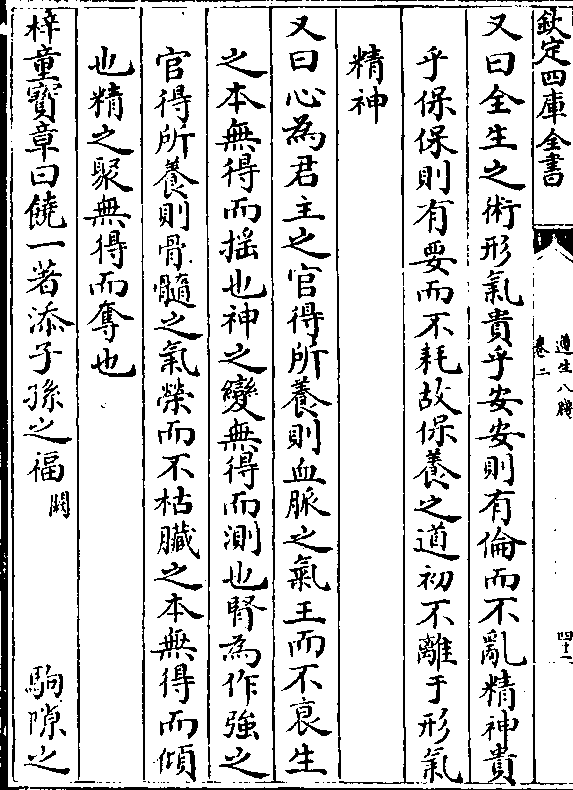 欽定四庫全書
遵生八牋
卷二
四十二
又曰全生之術形氣貴乎安安則有倫而不亂精神貴
乎保保則有要而不耗故保養之道初不離于形氣
精神
又曰心為君主之官得所養則血脈之氣王而不衰生
之本無得而揺也神之變無得而測也腎為作強之
官得所養則骨髓之氣榮而不枯臟之本無得而傾
也精之聚無得而奪也
梓童寶章曰饒一著添子孫之福闕 駒隙之